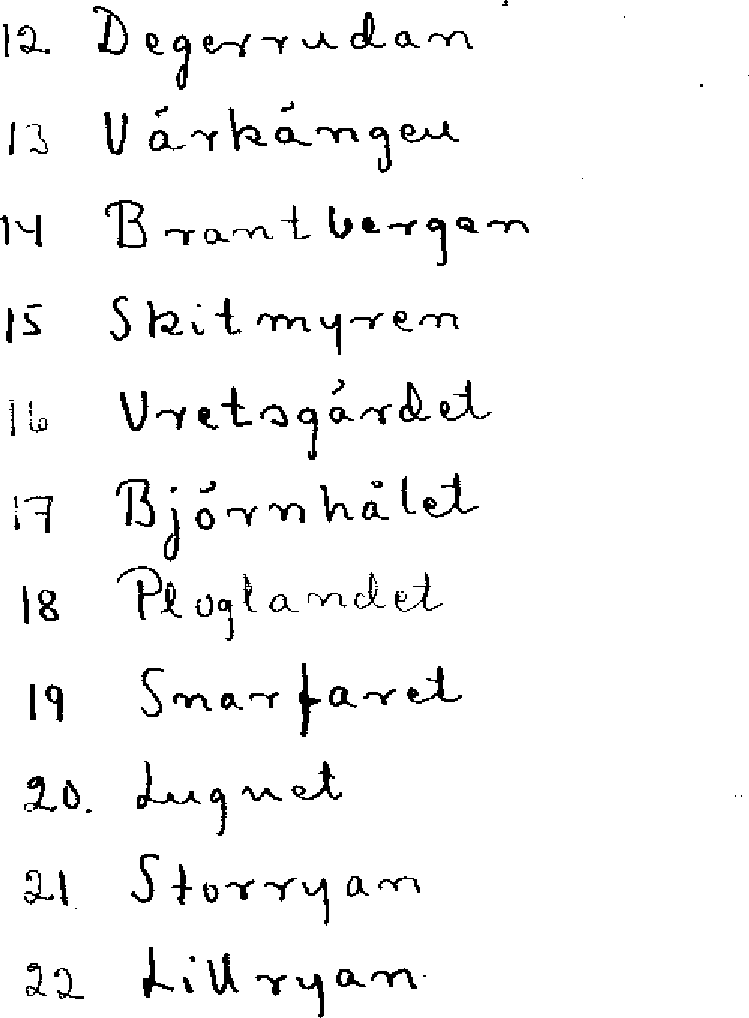 12. Degerrudan
13 Vårkången
14 Brantbergan
15 Skitmyren
16 Vretsgärdet
17 Björnhålet
18 Ploglandet
19 Snarfaret
20. Lugnet
21 Storryan
22 Lillryan